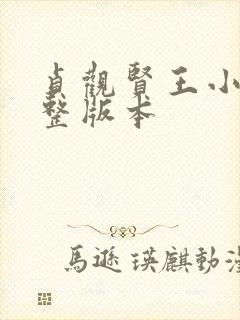 貞觀賢王小
整版本
馬遜瑛麒動漫